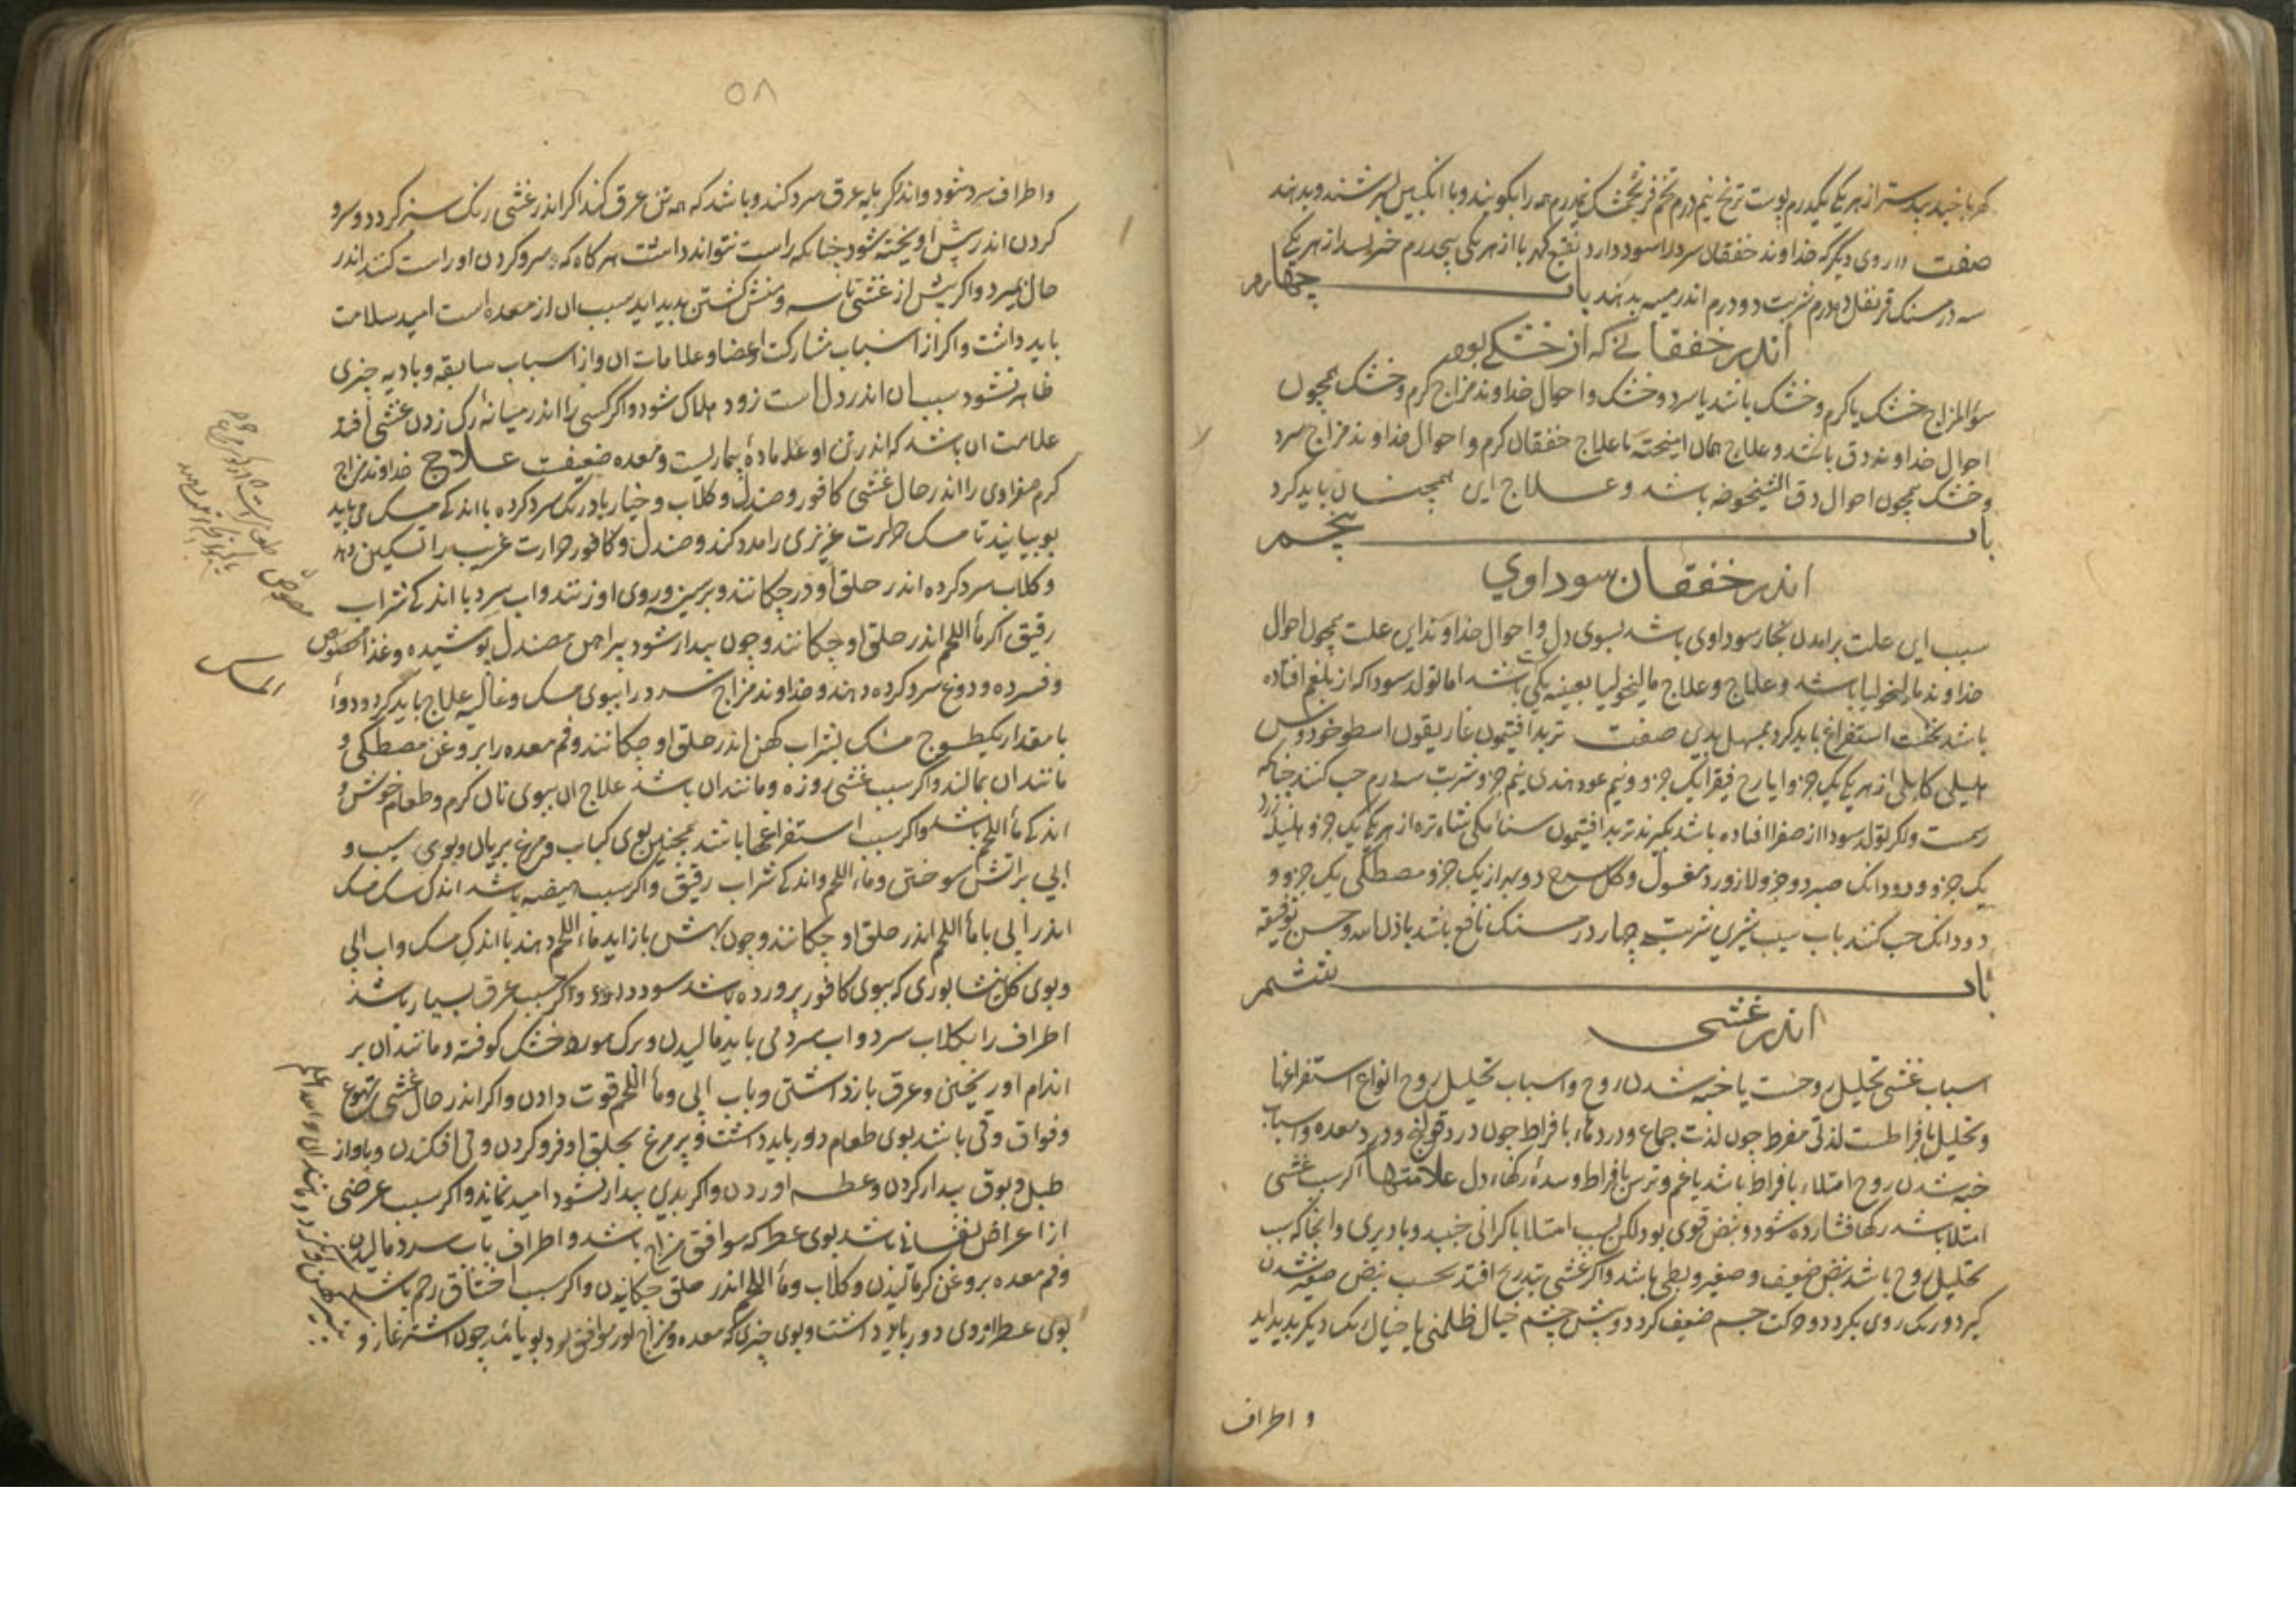 کهربا جندبیدستر از هر یکی یکدرم پوست ترنج نیم درم تخم فرنجمشک نیمدرم همه را بکوبند و با انکبین بسرشند و بدهند
صفت داروی دیگر که خداوند خفقان سرد را سود دارد کهربا از هر یکی پنجدرم از هر یکی
سه درمسنک قرنفل دو درم شربت دو درم اندر میبه بدهند باب چهارم
اندر خفقانی که از خشکی بود
سؤالمزاج خشک یا کرم و خشک باشد یا سرد و خشک و احوال خداوند مزاج کرم و خشک همچون
احوال خداوند دق باشد و علاج همان امیخته با علاج خفقان کرم و احوال خداوند مزاج سرد
و خشک همچون احوال دق الشیخوخه باشد و علاج این همچنان باید کرد
باب پنجم
اندر خفقان سوداوی
سبب این علت برامدن بخار سوداوی باشد بسوی دل و احوال خداوند این علت همچون احوال
خداوند مالیخولیا باشد و علاج و علاج مالیخولیا بعینه یکی باشد اما تولد سودا که از بلغم افتاده
باشد نخست استفراغ باید کرد بمسهل بدین صفت تربد افتیمون غاریقون اسطوخودوس
هلیلهٔ کابلی از هر یکی یک جزو ایارج فیقرا یک جزو و نیم عود هندی نیم جزو شربت سه درم حب کنند چنانکه
رسمست و اکر تولد سودا از صفرا افتاده باشد بکیرند تربد افتیمون سنا مکی شاهتره از هر یکی یک جزو هلیلهٔ زرد
یک جزو و دو دانک صبر دو جزو لازورد مغسول و کل سرخ از یک جزو مصطکی یک جزو و
دو دانک حب کنند باب سیب شیرین شربت چهار درمسنک نافع باشد باذن الله و حسن توفیقه
باب ششم
اندر غشی
اسباب غشی تحلیل روحست یا خبه شدن روح و اسباب تحلیل روح انواع استفراغها
و تحلیل بافراطست لذتی مفرط چون لذت جماع و دردها بافراط چون درد قولنج و درد معده و اسباب
خبه شدن روح امتلاء بافراط باشد یا غم و ترس بافراط و سدهٔ رکها دل علامتها اکر سبب غشی
امتلا باشد رکها فشارده شود و نبض قوی بود لکن بسبب امتلا با کرانی جنبد و با دیری و انجا که سبب
تحلیل روح باشد نبض ضعیف و صغیر و بطی باشد و اکر غشی بتدریج افتد نخست نبض صغیر شدن
کیرد و رنک روی بکردد و حرکت جسم ضعیف کردد و پیش چشم خیال ظلمتی یا خیال رنک دیکر پدید اید
و اطراف
۵۸
و اطراف سرد شود و اندکی مایه عرق سرد کند و باشد که همه تن عرق کند اکر اندر غشی رنک سبز کردد و سر و
کردن اندر پیش اویخته شود چنانکه راست نتواند داشت هرکاه که سر و کردن او راست کنند اندر
حال بمیرد و اکر پیش از غشی تاسه و منش کشتن پدید اید سبب ان از معده است امید سلامت
باید داشت و اکر از اسباب مشارکت اعضا و علامات ان و از اسباب سابقه و بادیه چیزی
ظاهر نشود سبب ان اندر دل است زود هلاک شود و اکر کسی را اندر میانهٔ رک زدن غشی افتد
علامت ان باشد که اندر تن او مادهٔ بیماریست و معده ضعیفت علاج خداوند مزاج
کرم صفراوی را اندر حال غشی کافور و صندل و کلاب و خیار بادرنک سرد کرده با اندکی مسک می باید
بویانید تا مسک حرارت غریزی را مدد کند و صندل و کافور حرارت غریب را تسکین دهد
و کلاب سرد کرده اندر حلق او در چکانند و بر سینه و روی او زنند و اب سرد با اندکی شراب
رقیق اکر ماء اللحم اندر حلق او چکانند و چون بیدار شود پیراهن مصندل پوشیده و غذا مصوص
و فسرده و دوغ سرد کرده دهند و خداوند مزاج سرد را ببوی مسک و غالیه علاج باید کرد و دوا
با مقدار یکطسوج مسک بشراب کهن اندر حلق او چکانند و فم معده را بروغن مصطکی و
مانند ان بمالند و اکر سبب غشی روزه و مانند ان باشد علاج ان ببوی نان کرم و طعام خوش و
اندکی ماء اللحم باشد و اکر سبب استفراغها باشد همچنین بوی کباب و مرغ بریان و بوی سیب و
ابی بر اتش سوختن و ماء اللحم و اندکی شراب رقیق و اکر سبب هیضه باشد اندک سک مسک
اندر ابی با ماء اللحم اندر حلق او چکانند و چون بهش باز اید ماء اللحم دهند با اندک مسک و اب ابی
و بوی کل نیشابوری که ببوی کافور پرورده باشد سود دارد و اکر سبب عرق بسیار باشد
اطراف را بکلاب سرد و اب سرد می باید مالیدن و برک مورد خشک کوفته و مانند ان بر
اندام او ریختن و عرق باز داشتن و باب ابی و ماء اللحم قوت دادن و اکر اندر حال غشی تهوع
و فواق و قی باشد بوی طعام دور باید داشت و پر مرغ بحلق او فرو کردن و قی افکندن و باواز
طبل و بوق بیدار کردن و عطسه اوردن و اکر بدین بیدار نشود امید نماند و اکر سبب عرضی
از اعراض نفسانی باشد بوی عطر که موافق مزاج باشد و اطراف باب سرد مالیدن
و فم معده بروغن کرم مالیدن و کلاب و ماء اللحم اندر حلق چکانیدن و اکر سبب اختناق رحم باشد
بوی عطر از وی دور باید داشت و بوی چیزی که معده و مزاج او را موافق بود بویانند چون اشترغاز و
مصوص